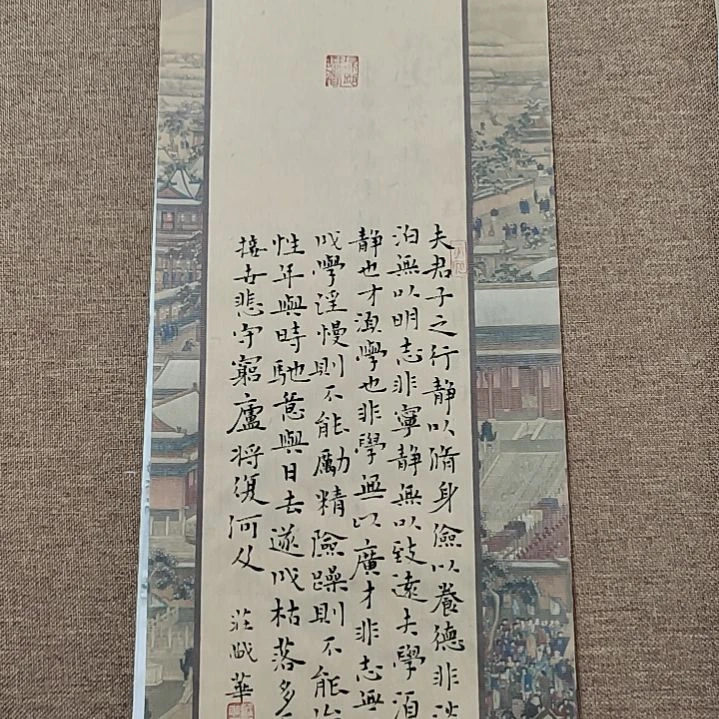 夫君子之行静以脩身儉以養德非淡
泊無以明志非寧静無以致遠夫學須
静也才須學也非學無以廣才非志無
成學淫慢則不能勵精險躁則不能治
性年與時馳意與日去遂成枯落多
接世悲守窮廬將復何及
莊 華